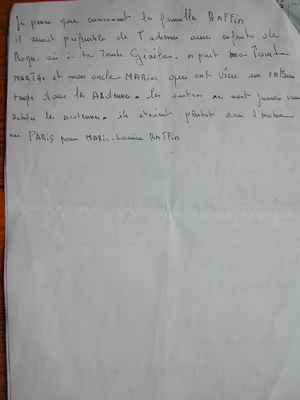 Je pense que concernant la famille RAFFIN
il serait préférable de t'adresser aux enfants de
Roger ou à ta Tante Gisèle. A part ma Tante
MARTHE et mon oncle MARIUS qui ont vécu un certain
temps dans les Ardennes. les autres ne sont jamais venu
les ardennes. ils étaient plutôt dans l'aube
ou PARIS pour MARIE-Louise RAFFIN